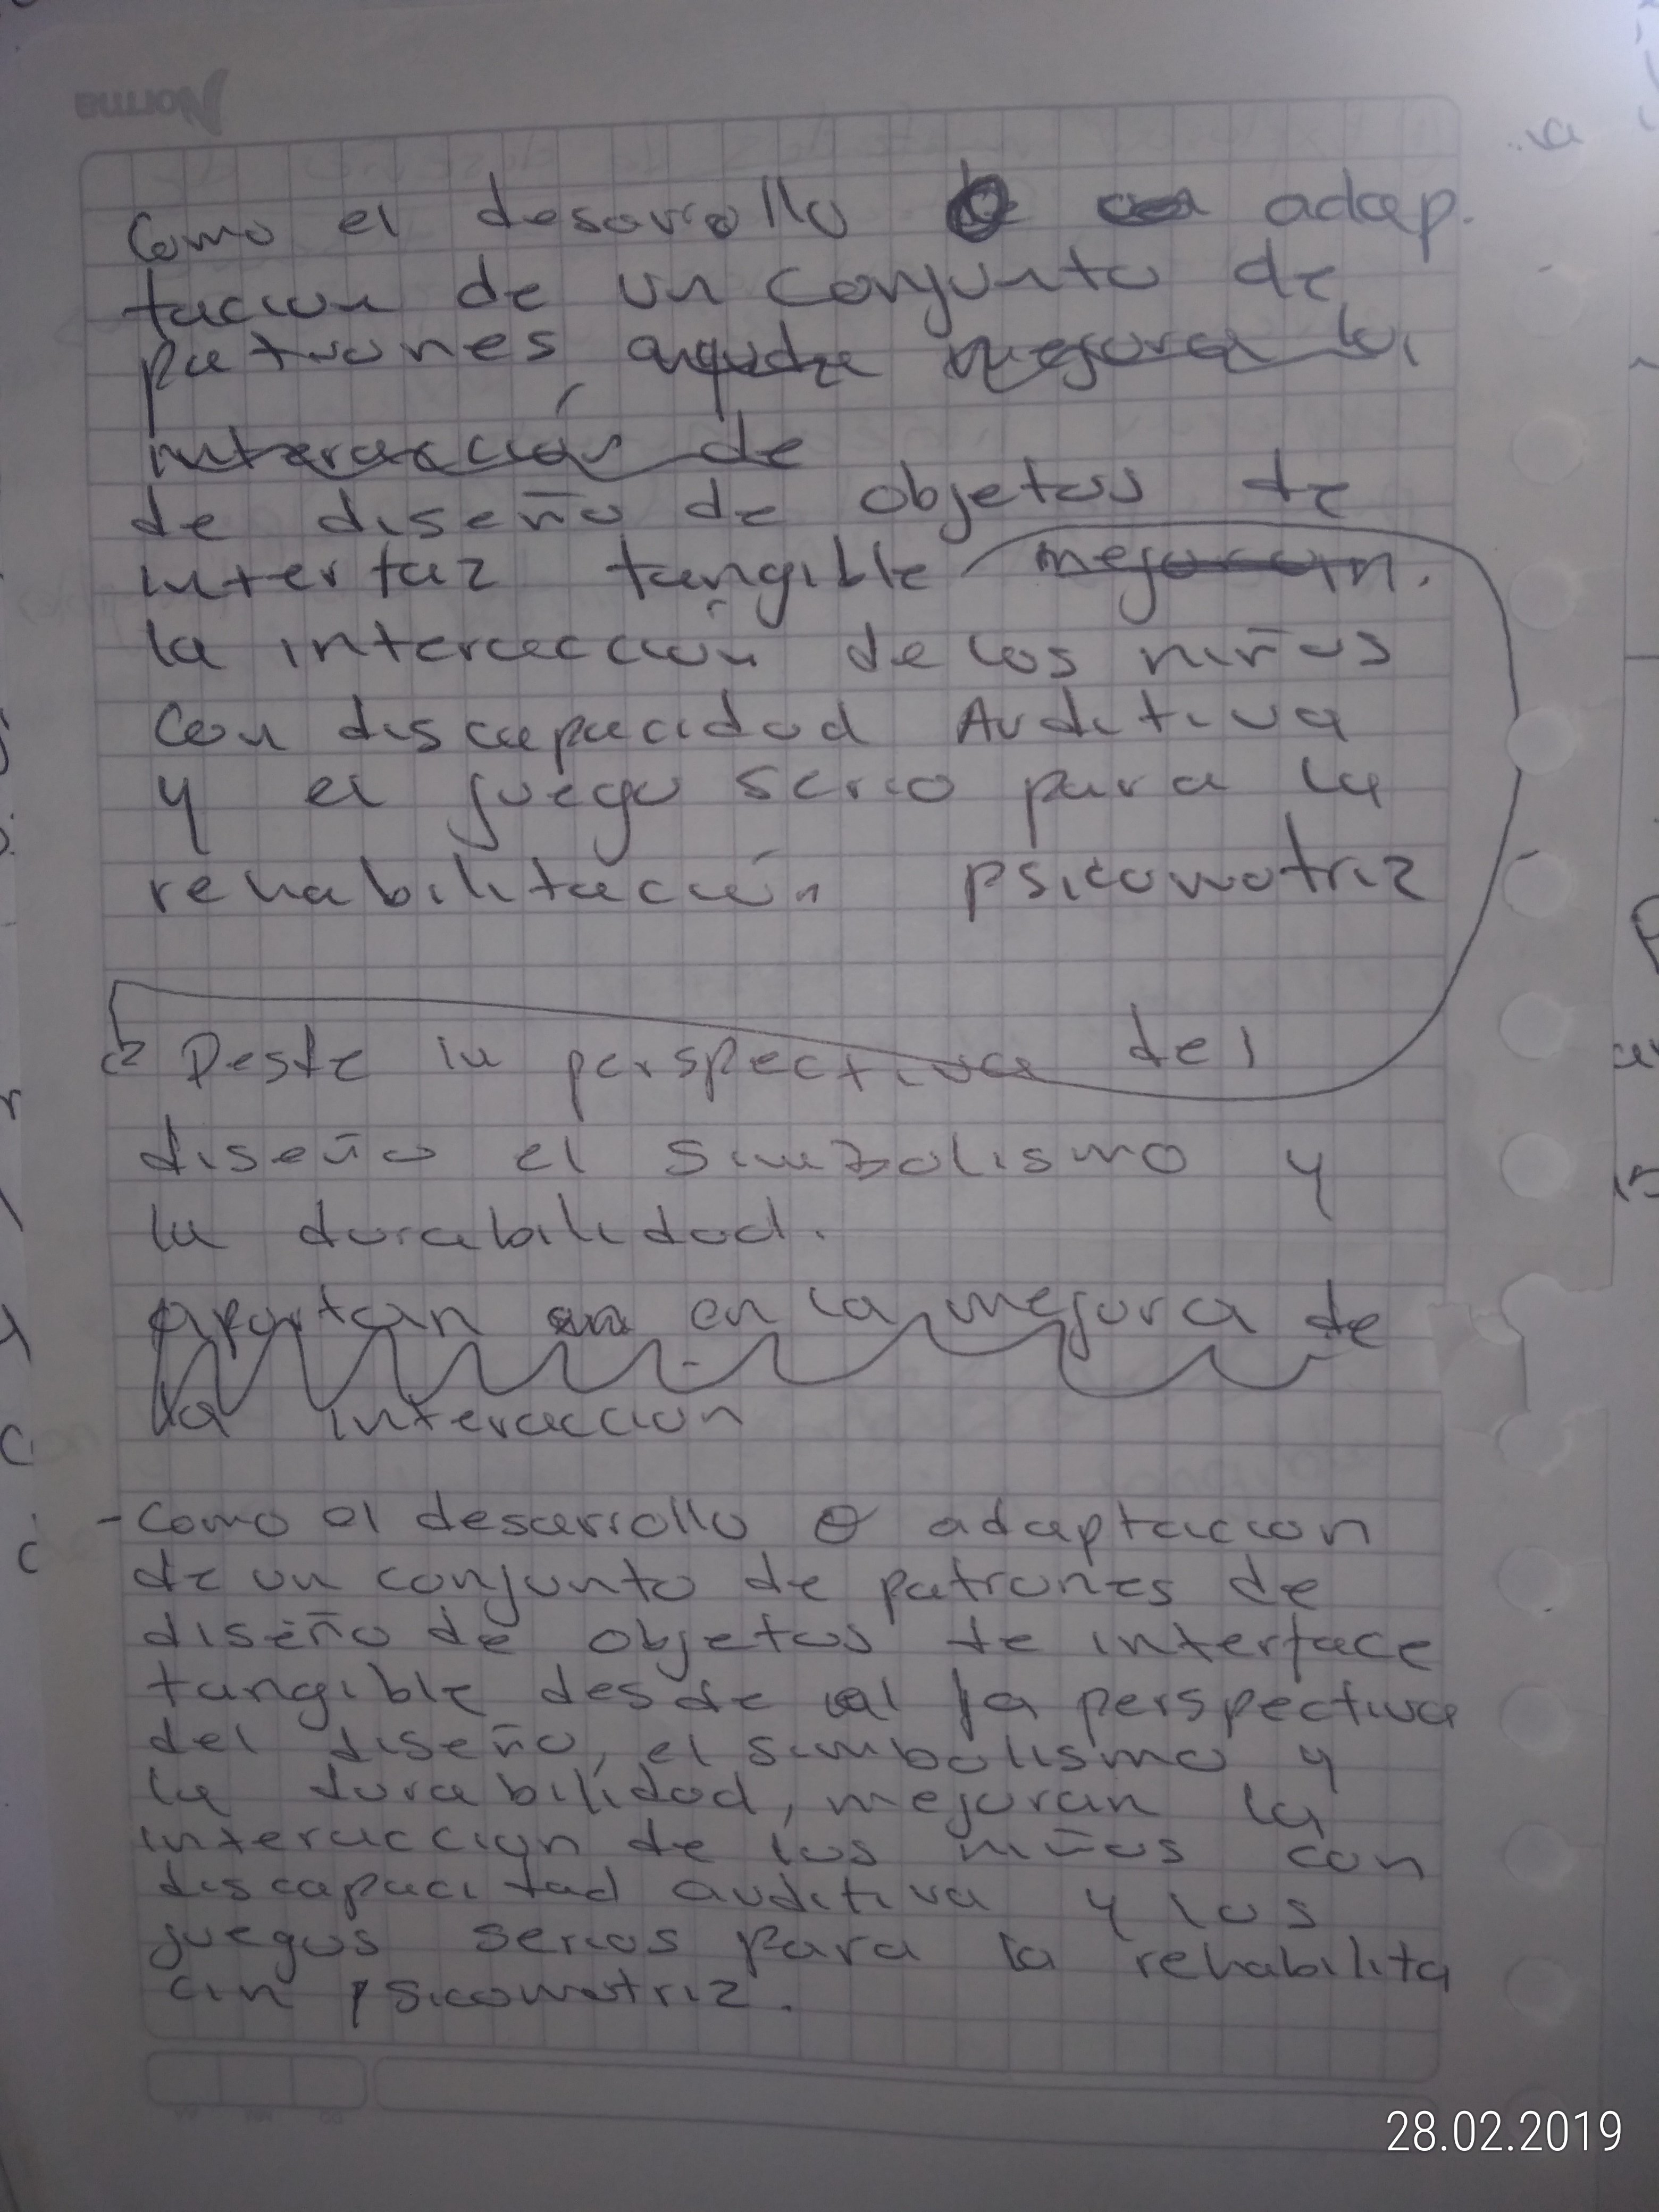 Norma
Como el desarrollo o adap.
tacion de un conjunto de
patrones ayude mejorar la
interacción de
de diseño de objetos de
interfaz tangible mejoran.
la interacción de los niños
con discapacidad Auditiva
y el juego serio para la
rehabilitación psicomotriz
Desde la perspectiva del
diseño el simbolismo y
la durabilidad.
aportan en en la mejora de
la interaccion
- Como el desarrollo o adaptacion
de un conjunto de patrones de
diseño de objetos de interface
tangible desde la perspectiva
del diseño, el simbolismo y
la durabilidad, mejoran la
interaccion de los niños con
discapacidad auditiva y los
juegos serios para la rehabilita
cin psicomotriz.
28.02.2019